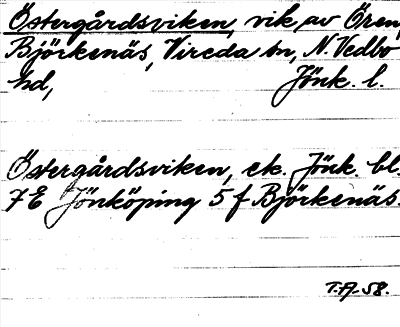 Östergårdsviken, vik av Ören,
Björkenäs, Vireda sn, N. Vedbo
hd, Jönk. l.
Östergårdsviken, ek. Jönk. bl.
7E Jönköping 5 f Björkenäs.
T.A. 58.